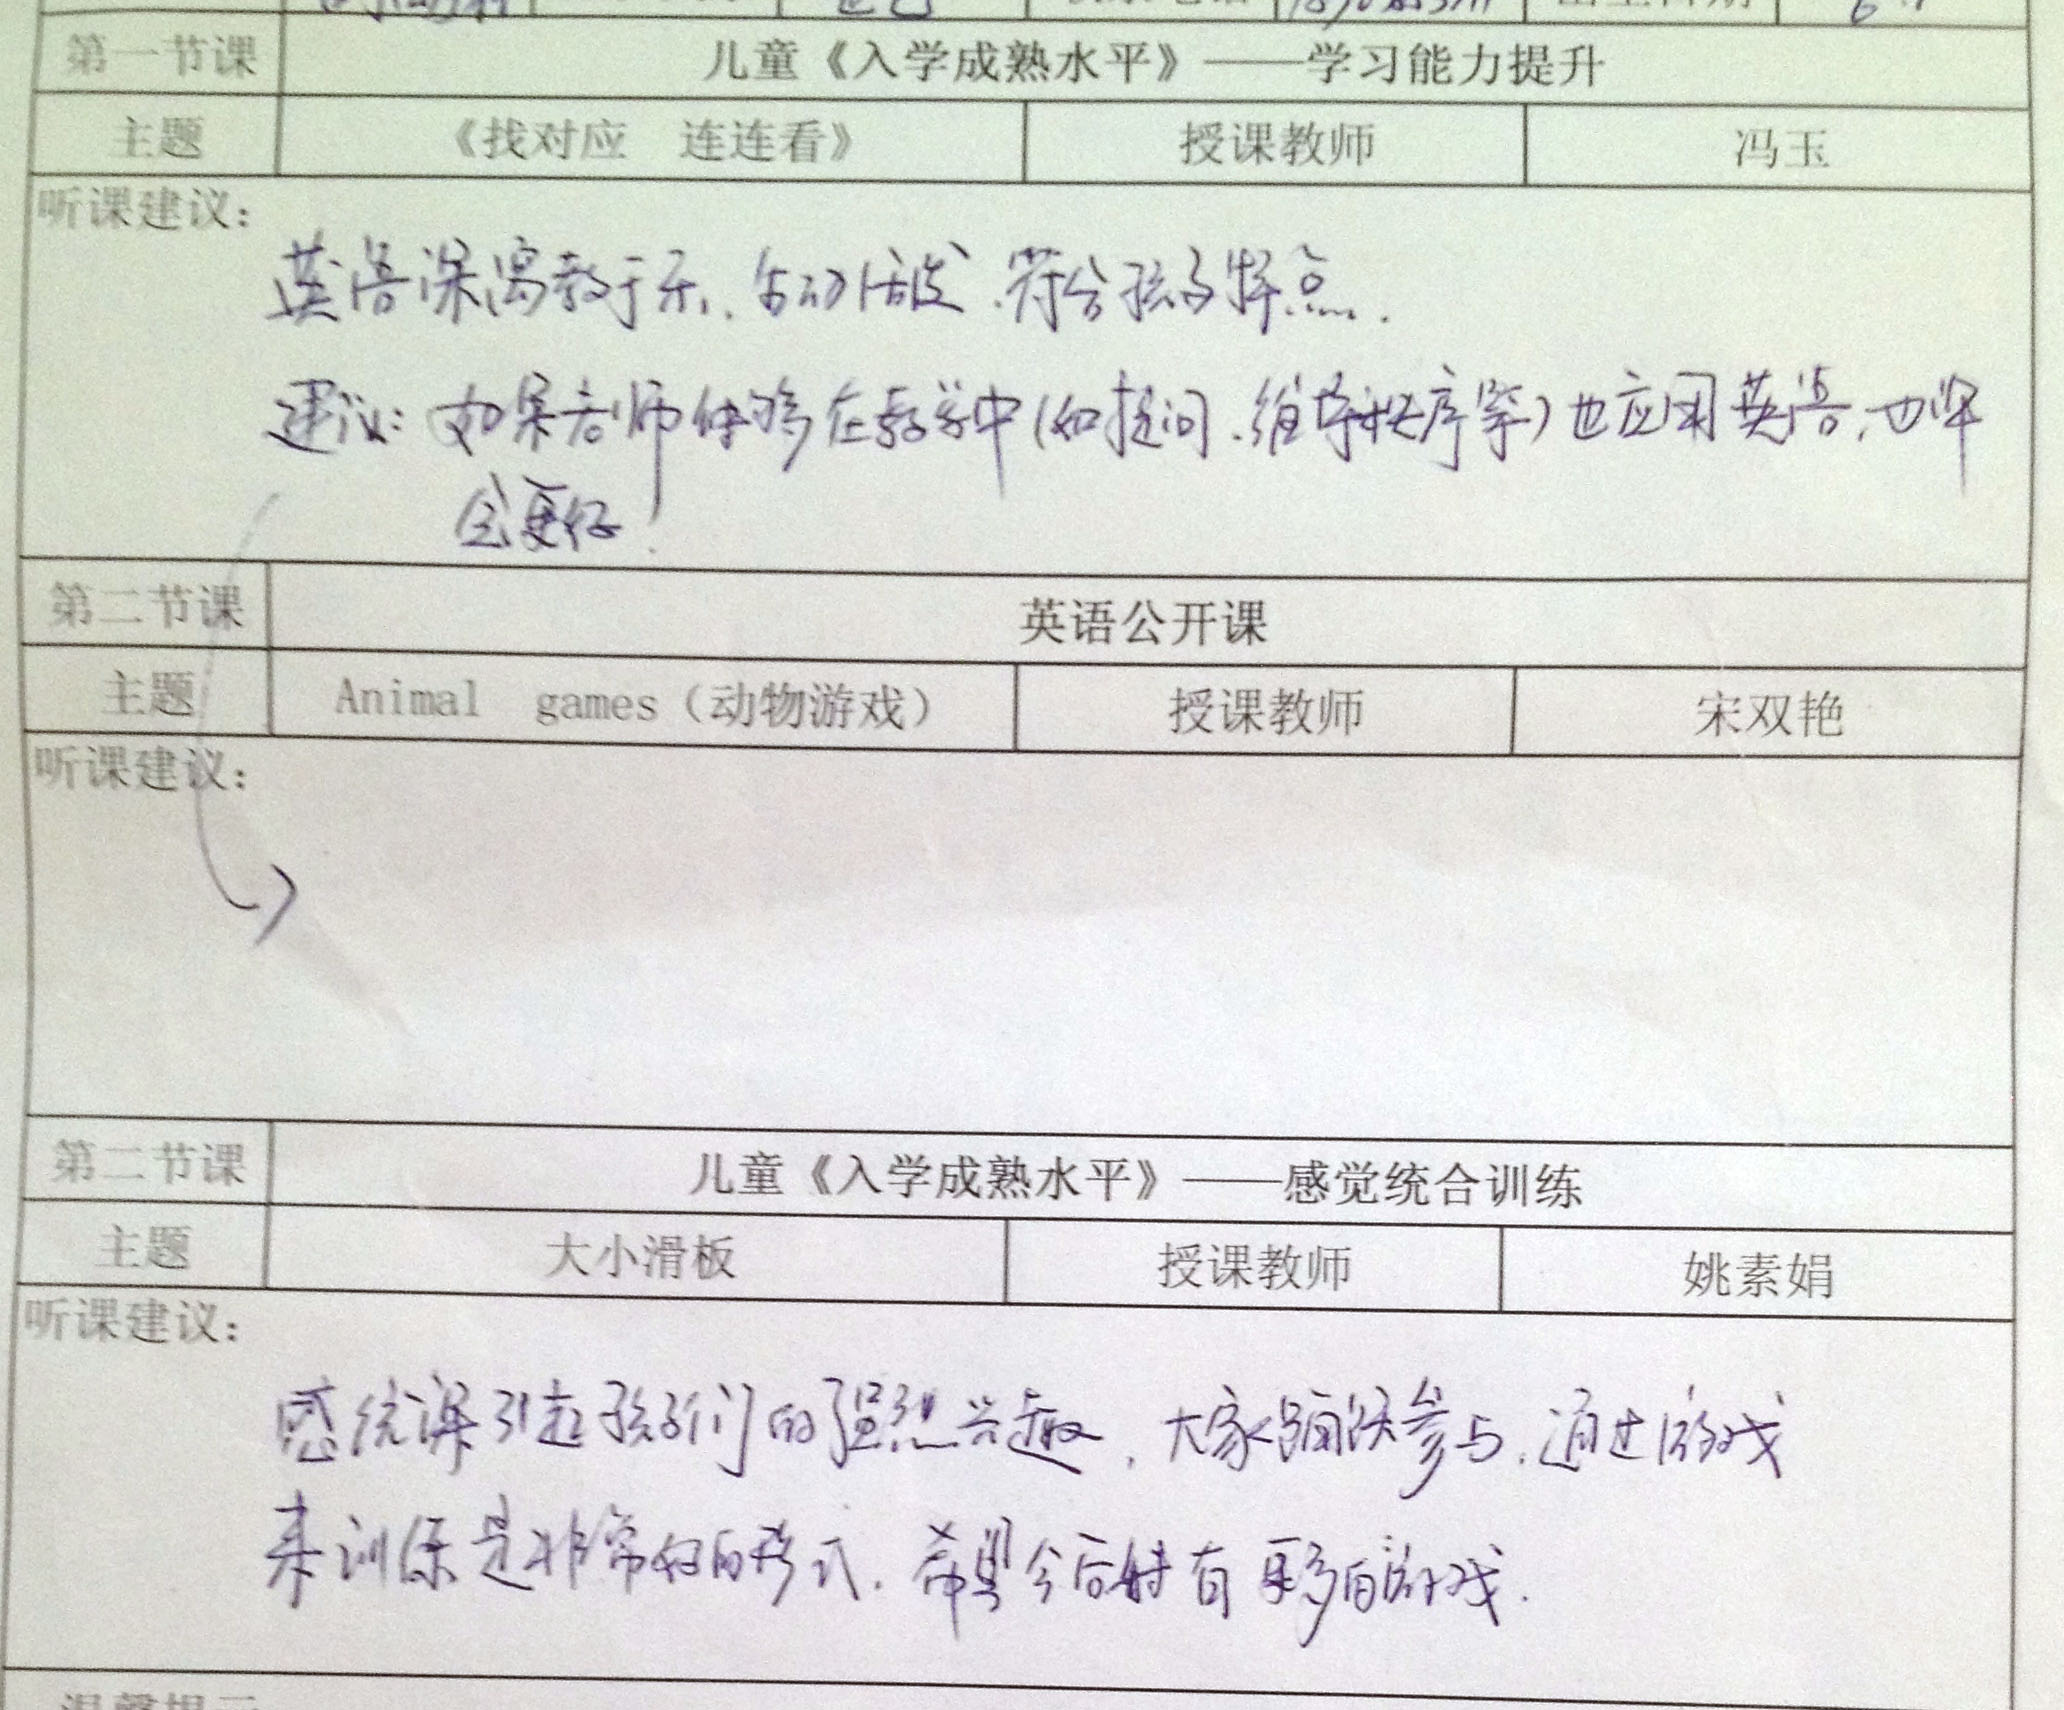 第一节课 儿童《入学成熟水平》——学习能力提升
主题 《找对应 连连看》 授课教师 冯玉
听课建议：
英语课寓教于乐、生动活泼、符合孩子特点.
建议：如果老师能够在教学中(如提问、维持秩序等)也应用英语,也许
会更好！
第二节课 英语公开课
主题 Animal games（动物游戏） 授课教师 宋双艳
听课建议：
第二节课 儿童《入学成熟水平》——感觉统合训练
主题 大小滑板 授课教师 姚素娟
听课建议：
感统课引起孩子们的强烈兴趣,大家踊跃参与,通过游戏
来训练是非常好的形式.希望今后能有更多的游戏.